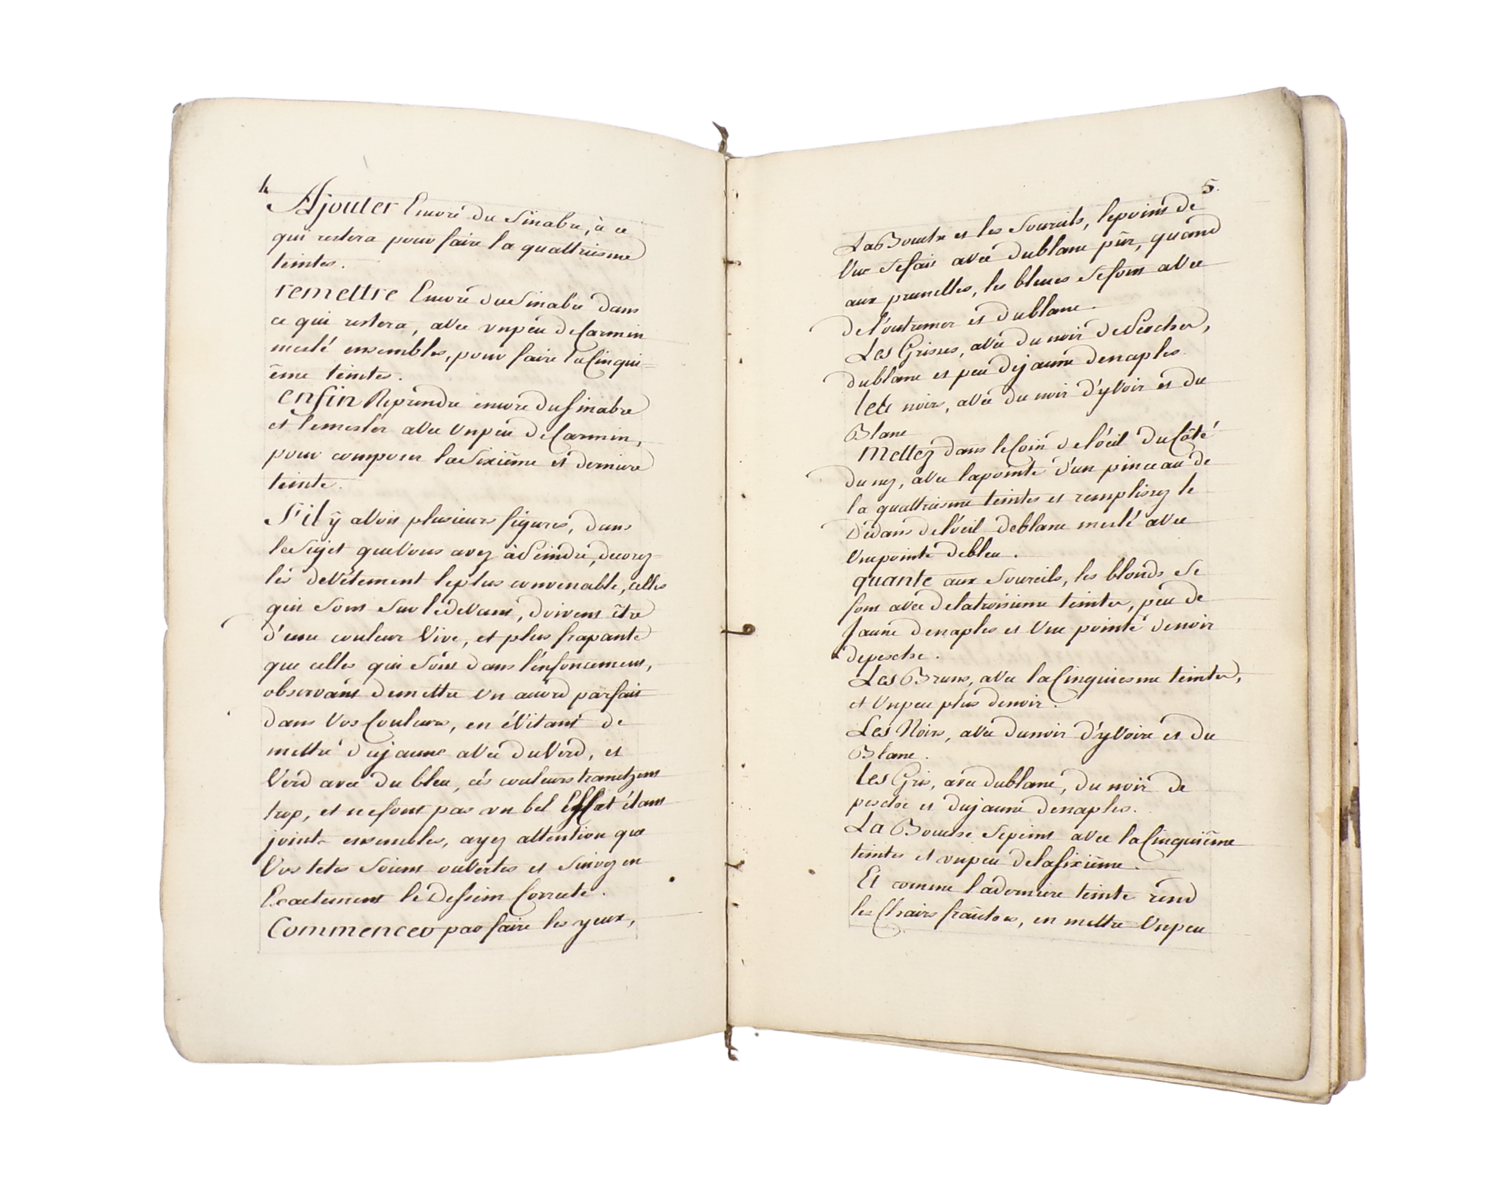 4
Ajouter Encore du Sinabre, à ce
qui restera pour faire la quattriesme
teintes.
remettre Encore du Sinabre dans
ce qui restera, avec un peu de Carmin
meslé ensembles, pour faire la Cinqui=
ême teintes.
enfin Reprendre encore du Sinabre
et le mesler avec un peu de Carmin,
pour composer la Sixiême et derniere
teinte.
S'il ÿ avoit plusieurs figures, dans
le Sujet que Vous avez à Peindre, decorez=
lès de Vêtement le plus convenable, celles
qui Sont Sur le devant, doivent être
d'une couleur Vive, et plus frapante
que celles qui Sont dans l'enfoncement,
observant de mettre un acord parfait
dans Vos Couleurs, en évitant de
mettre du jaune avec du Verd, et
Verd avec du bleu, cés couleurs tranchent
trop, et ne font pas un bel Effet étant
joints ensembles, ayez attention que
Vos tetes Soient ouvertes et Suivez en
Exactement le Dessein Correcte.
Commencer par faire les yeux,
5.
La Bouche et les Sourcils, le point de
Vue Se fait avec du blanc pür, quand
aux prunelles, les bleues Se font avec
de l'outremer et du blanc.
Les Grises, avec du noir de Pescher,
du blanc et peu de jaune de naples.
les noirs, avec du noir d'yvoir et du
Blanc
Mettez dans le Coin de l'oeil du Côté
du nez, avec la pointe d'un pinceau de
la quattriesme teintes et remplissez le
Dedans de l'oeil de blanc meslé avec
Une pointe de bleu.
quante aux Sourcils, les blonds Se
font avec de la troisieme teinte, peu de
Jaune de naples et Une pointe de noir
de pesche.
Les Bruns, avec la Cinquiesme teinte,
et Un peu plus de noir.
Les Noirs, avec du noir d'yvoire et du
Blanc.
Les Gris, avec du blanc, du noir de
pesche et du jaune de naples.
La Bouche Se peint avec la Cinquiême
teintes et un peu de la Sixiême.
Et comme la derniere teinte rend
les Chairs fraîches, en mettre Un peu